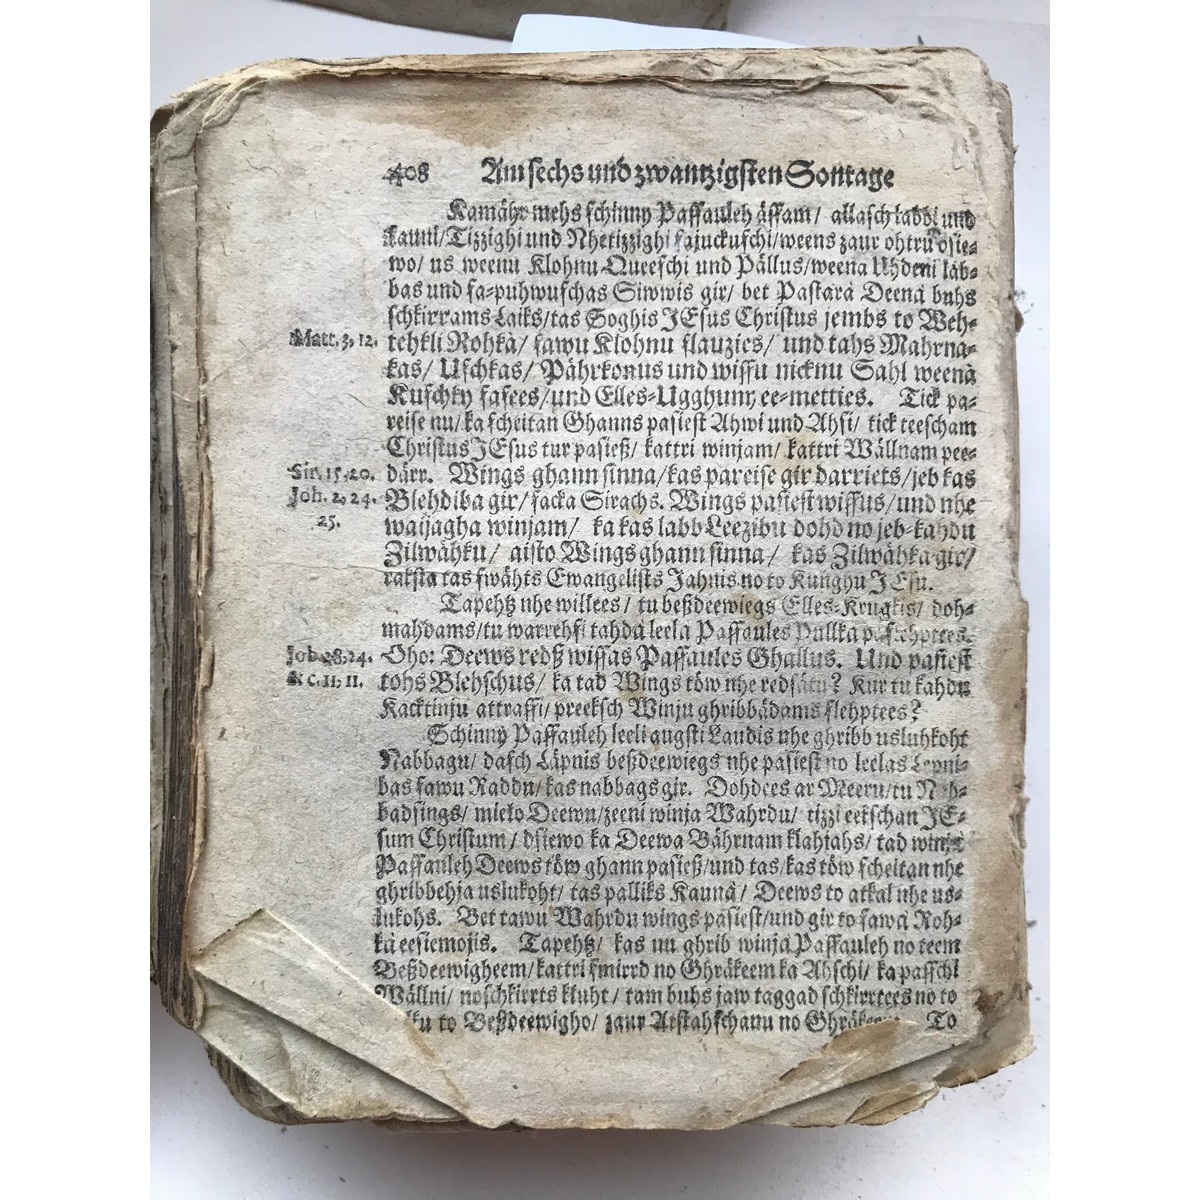 408 Am sechs und zwantzigsten Sontage
Kamähr mehs schinny Passauleh ässam/ allasch labbi und
Launi/Tizzighi und Nhetizzighi sajuckuschi/weens zaur ohtru dsie-
wo/ us weenu Klohnu Queeschi und Pällus/weena Uhdeni lab-
bas und sa-puhwuschas Siwwis gir/ bet Pastarà Deenà buhs
schkirrams Laiks/tas Soghis JEsus Christus jembs to Weh-
Matt. 3, 12. tehkli Rohkà/ sawu Klohnu slauzies/ und tahs Mahrna-
kas/ Uschkas/ Pährkonus und wissu nicknu Sahl weenà
Kuschky sasees/und Elles-Ugghunŋ ee-metties. Tick pa-
reise nu/ka scheitan Ghanns pasiest Ahwi und Ahsi/ tick teescham
Christus JEsus tur pasieß/ kattri winjam/ kattri Wällnam pee-
Sir. 15, 20. därr. Wings ghann sinna/kas pareise gir darriets/jeb kas
Joh. 2, 24. Blehdiba gir/ sacka Sirachs. Wings pasiest wissus/und nhe
25. waijagha winjam/ ka kas labb Leezibu dohd no jeb-kahdu
Zilwähku/ aisto Wings ghann sinna/ kas Zilwähka gir/
raksta tas swähts Ewangelists Jahnis no to Kungyu JEsu.
Tapehtz nhe willees/ tu beßdeewiegs Elles-Krugkis/ doh-
mahdams/tu warrehsi tahdà leelà Passaules Pullkà paslehptees.
Job. 28, 24. Oho: Deews redß wissas Passaules Ghallus. Und pasiest
& c. 11, 11. tohs Blehschus/ ka tad Wings töw nhe redsätu? Kur tu kahdu
Kacktinju attrassi/ preeksch Winju ghribbädams slehptees?
Schinny Passauleh leeli augsti Laudis nhe ghribb usluhkoht
Nabbagu/ dasch Läpnis beßdeewiegs nhe pasiest no leelas Lepni-
bas sawu Raddu/ kas nabbags gir. Dohdees ar Meeru/tu Nab-
badsings/ mielo Deewu/zeeni winja Wahrdu/ tizzi eekschan JE-
sum Christum/ dsiewo ka Deewa Bährnam klahjahs/ tad winjà
Passauleh Deews töw ghann pasieß/und tas/kas töw scheitan nhe
ghribbehja uslukoht/ tas palliks Kaunà/ Deews to atkal nhe us-
lukohs. Bet tawu Wahrdu wings pasiest/und gir to sawà Roh-
kà eesiemojis. Tapehtz/ kas nu ghrib winjà Passauleh no teem
Beßdeewigheem/kattri smirrd no Ghräkeem ka Ahschi/ ka passchi
Wällni/ noschkirrts kluht/ tam buhs jaw taggad schkirrtees no to
to Beßdeewigho/ zaur Atstahschanu no Ghräkeem. To